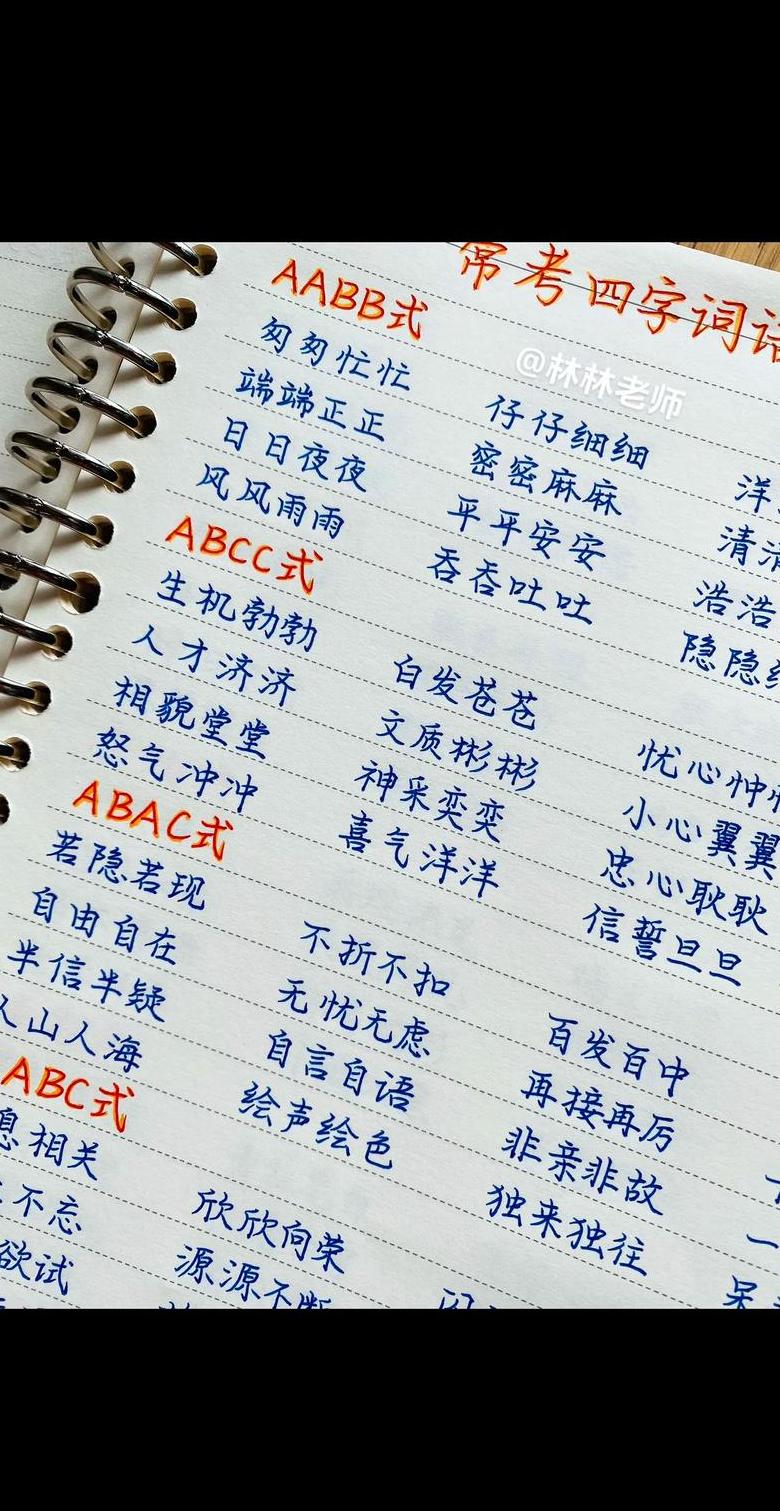 常考四字词语
@林林老师
AABB式
匆匆忙忙 仔仔细细 洋
端端正正 密密麻麻 清清
日日夜夜 平平安安 浩浩
风风雨雨 吞吞吐吐 隐隐
ABCC式
生机勃勃 白发苍苍 忧心忡
人才济济 文质彬彬 小心翼翼
相貌堂堂 神采奕奕 忠心耿耿
怒气冲冲 喜气洋洋 信誓旦旦
ABAC式
若隐若现 不折不扣 百发百中
自由自在 无忧无虑 再接再厉
半信半疑 自言自语 非亲非故 一
人山人海 绘声绘色 独来独往 呆
ABC式
息相关 欣欣向荣
不忘 源源不断
欲试